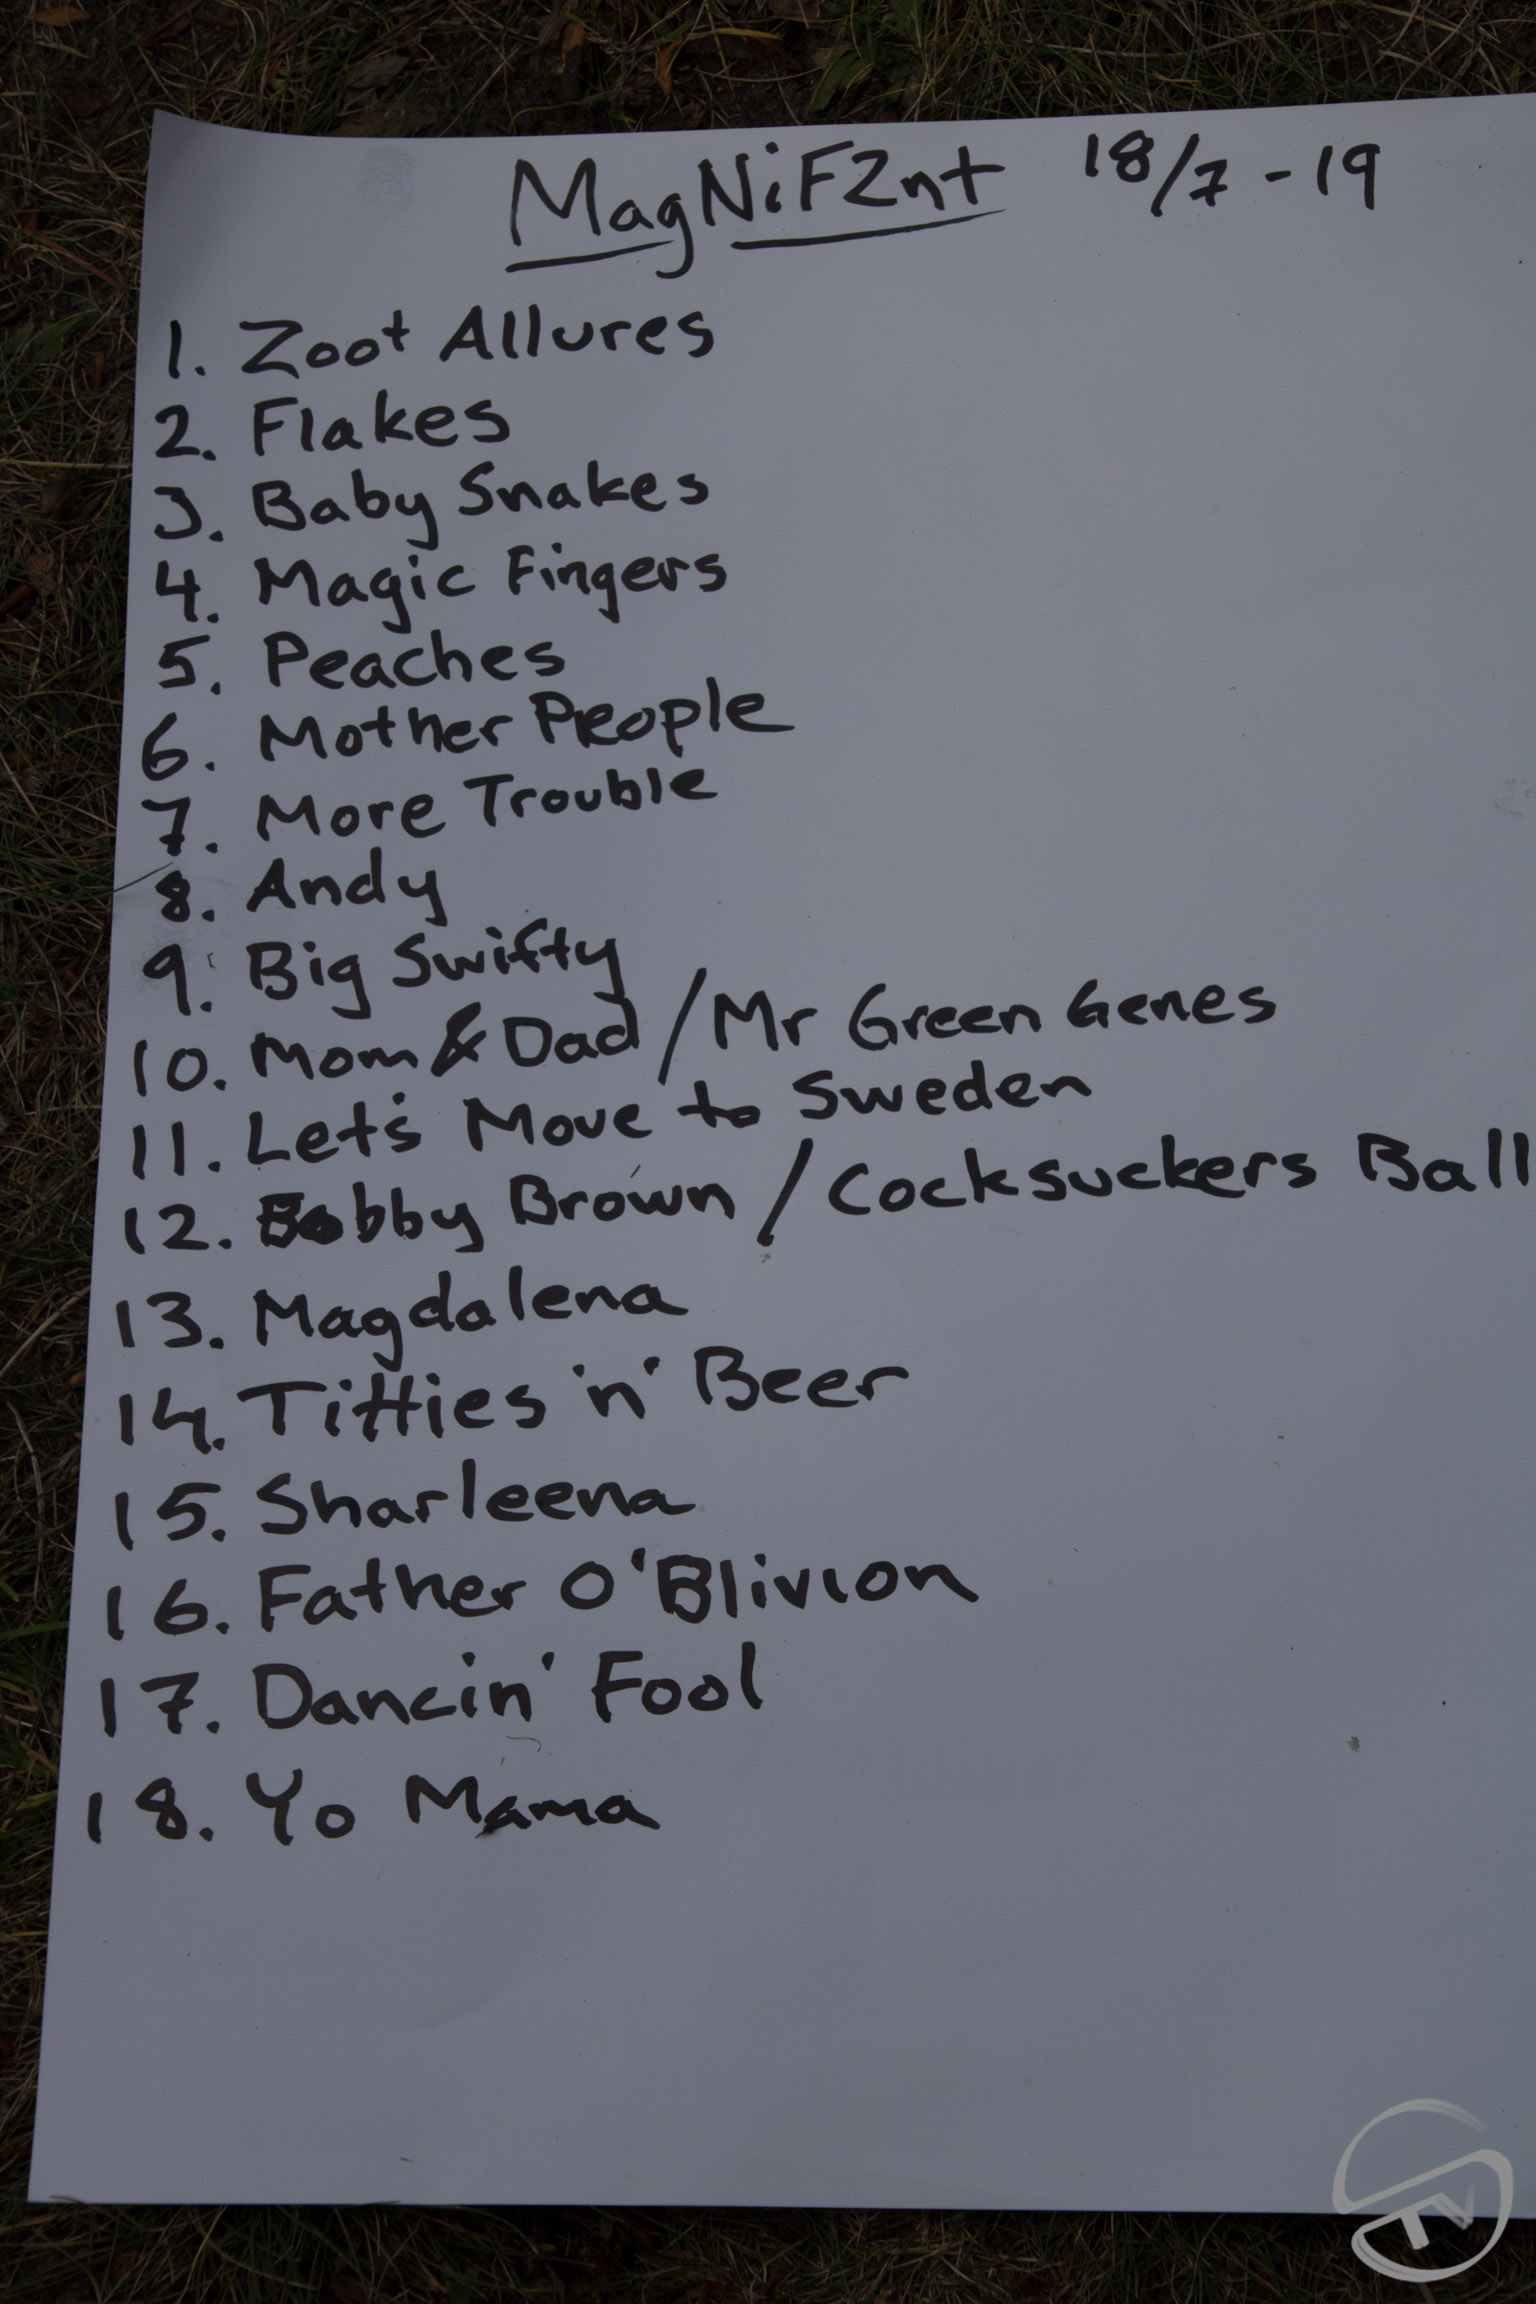 MagNiFZnt 18/7-19
1. Zoot Allures
2. Flakes
3. Baby Snakes
4. Magic Fingers
5. Peaches
6. Mother People
7. More Trouble
8. Andy
9. Big Swifty
10. Mom & Dad / Mr Green Genes
11. Let's Move to Sweden
12. Bobby Brown / Cocksuckers Ball
13. Magdalena
14. Titties 'n' Beer
15. Sharleena
16. Father O'Blivion
17. Dancin' Fool
18. Yo Mama
TV